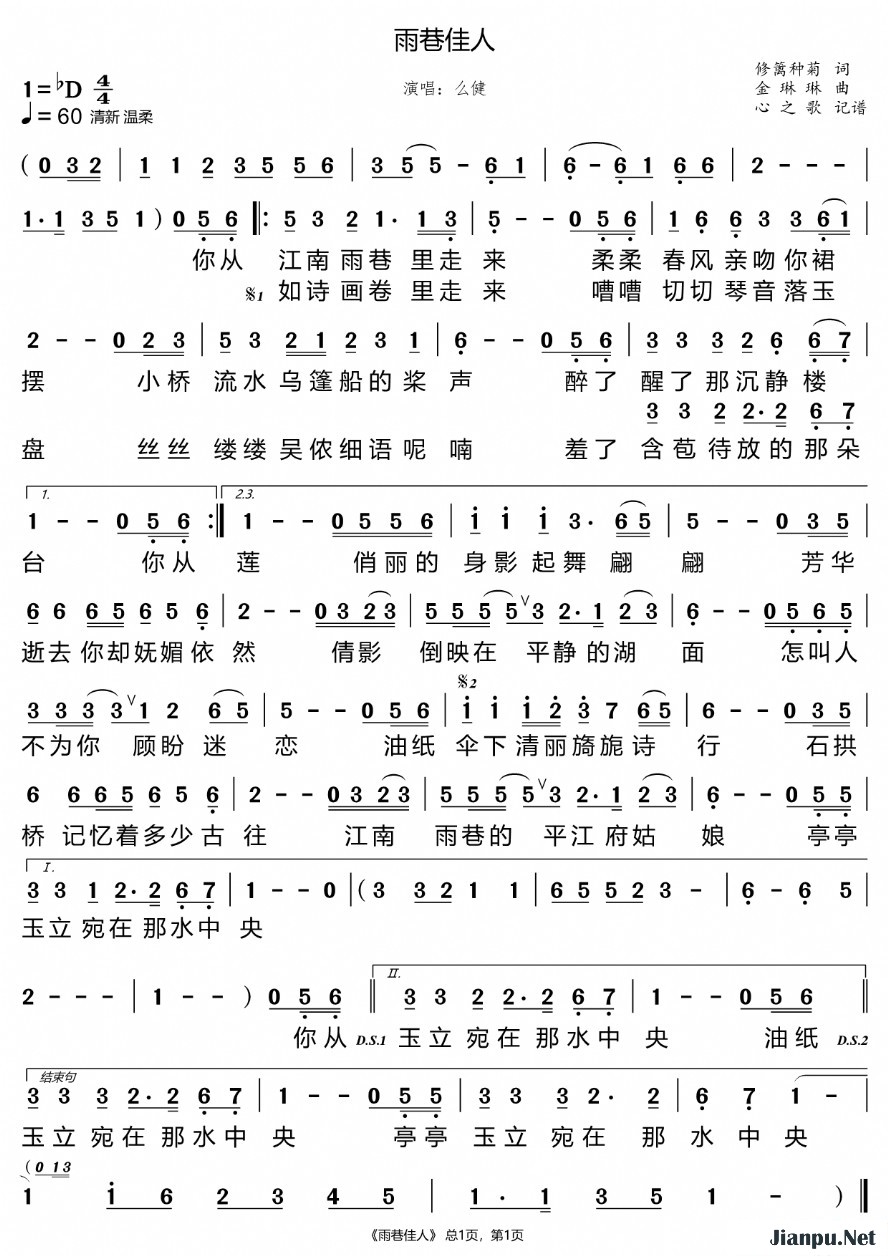 雨巷佳人
1=♭D 4/4
♩=60 清新 温柔
演唱：么健
修篱种菊 词
金琳琳 曲
心之歌 记谱
(0 3 2 | 1 1 2 3 5 5 6 | 3 5 5 - 6 1 | 6 - 6 1 6 6 | 2 - - - |
1· 1 3 5 1 ) 0 5 6 ‖: 5 3 2 1· 1 3 | 5 - - 0 5 6 | 1 6 6 3 3 6 1 |
你从 江南雨巷 里走 来 柔柔 春风亲吻你裙
𝄋1 如诗画卷 里走 来 嘈嘈 切切琴音落玉
2 - - 0 2 3 | 5 3 2 1 2 3 1 | 6 - - 0 5 6 | 3 3 3 2 6 6 7 |
摆 小桥 流水乌篷船的桨 声 醉了 醒了那沉静楼
3 3 2 2· 2 6 7
盘 丝丝 缕缕吴侬细语呢 喃 羞了 含苞待放的那朵
1. 2.3.
1 - - 0 5 6 :‖ 1 - - 0 5 5 6 | i i i 3· 6 5 | 5 - - 0 3 5 |
台 你从 莲 俏丽的 身影起舞翩 翩 芳华
6 6 6 5 6 5 6 | 2 - - 0 3 2 3 | 5 5 5 5 ∨ 3 2· 1 2 3 | 6 - - 0 5 6 5 |
逝去你却妩媚依 然 倩影 倒映在 平静的湖 面 怎叫人
𝄋2
3 3 3 3 ∨ 1 2 6 5 | 5 - - 0 5 6 | i i i 2 3 7 6 5 | 6 - - 0 3 5 |
不为你 顾盼 迷 恋 油纸 伞下清丽旖旎诗 行 石拱
6 6 6 5 6 5 6 | 2 - - 0 3 2 3 | 5 5 5 5 ∨ 3 2· 1 2 3 | 6 - - 0 5 5 |
桥 记忆着多少古 往 江南 雨巷的 平江府姑 娘 亭亭
I.
3 3 1 2· 2 6 7 | 1 - - 0 | (3 3 2 1 1 | 6 5 5 2 3 - | 6 - 6 5 |
玉立宛在那水中 央
II.
2 - - - | 1 - - ) 0 5 6 ‖ 3 3 2 2· 2 6 7 | 1 - - 0 5 6 ‖
你从 D.S.1 玉立宛在那水中 央 油纸 D.S.2
结束句
3 3 3 2· 2 6 7 | 1 - - 0 5 5 | 3 3 3 2· 2 | 6 7 1 - |
玉立宛在那水中 央 亭亭 玉立宛在那 水 中 央
(0 1 3
1 i 6 2 3 4 5 | 1 · 1 3 5 | 1 - - ) ‖
《雨巷佳人》 总1页，第1页
Jianpu.Net